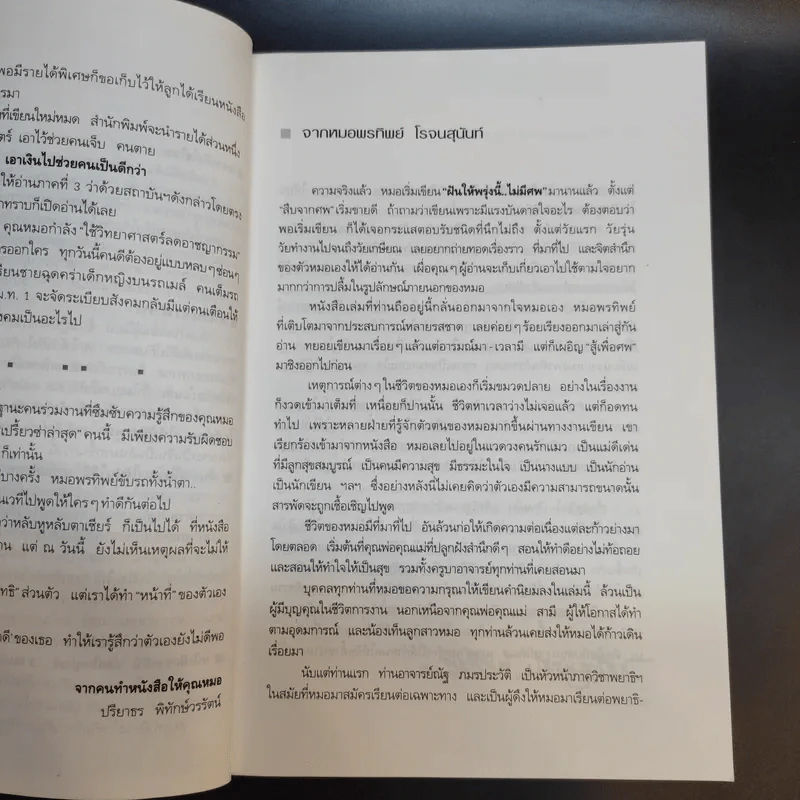 พอมีรายได้พิเศษก็ขอเก็บไว้ให้ลูกได้เรียนหนังสือ
รมา
ที่เขียนใหม่หมด สำนักพิมพ์จะนำรายได้ส่วนหนึ่ง
ตร์ เอาไว้ช่วยคนเจ็บ คนตาย
เอาเงินไปช่วยคนเป็นดีกว่า
ให้อ่านภาคที่ 3 ว่าด้วยสถาบันฯดังกล่าวโดยตรง
ากทราบก็เปิดอ่านได้เลย
คุณหมอกำลัง "ใช้วิทยาศาสตร์ลดอาชญากรรม"
ครออกใคร ทุกวันนี้คนดีต้องอยู่แบบหลบๆซ่อนๆ
เรียนชายฉุดคร่าเด็กหญิงบนรถเมล์ คนเต็มรถ
ม.ท. 1 จะจัดระเบียบสังคมกลับมีแต่คนเตือนให้
งคมเป็นอะไรไป
ฐานะคนร่วมงานที่ซึมซับความรู้สึกของคุณหมอ
"เปรี้ยวซ่าล่าสุด" คนนี้ มีเพียงความรับผิดชอบ
ก็เท่านั้น
บางครั้ง หมอพรทิพย์ขับรถทั้งน้ำตา..
นเวทีไปพูดให้ใครๆทำดีกันต่อไป
ว่าหลับหูหลับตาเชียร์ ก็เป็นไปได้ ที่หนังสือ
าน แต่ ณ วันนี้ ยังไม่เห็นเหตุผลที่จะไม่ให้
ทธิ" ส่วนตัว แต่เราได้ทำ "หน้าที่" ของตัวเอง
าดี" ของเธอ ทำให้เรารู้สึกว่าตัวเองยังไม่ดีพอ
จากคนทำหนังสือให้คุณหมอ
ปรียาธร พิทักษ์วรรัตน์
จากหมอพรทิพย์ โรจนสุนันท์
ความจริงแล้ว หมอเริ่มเขียน "ฝันให้พรุ่งนี้..ไม่มีศพ" มานานแล้ว ตั้งแต่
"สืบจากศพ" เริ่มขายดี ถ้าถามว่าเขียนเพราะมีแรงบันดาลใจอะไร ต้องตอบว่า
พอเริ่มเขียน ก็ได้เจอกระแสตอบรับชนิดที่นึกไม่ถึง ตั้งแต่วัยแรก วัยรุ่น
วัยทำงานไปจนถึงวัยเกษียณ เลยอยากถ่ายทอดเรื่องราว ที่มาที่ไป และจิตสำนึก
ของตัวหมอเองให้ได้อ่านกัน เผื่อคุณๆผู้อ่านจะเก็บเกี่ยวเอาไปใช้ตามใจอยาก
มากกว่าการปลื้มในรูปลักษณ์ภายนอกของหมอ
หนังสือเล่มที่ท่านถืออยู่นี้กลั่นออกมาจากใจหมอเอง หมอพรทิพย์
ที่เติบโตมาจากประสบการณ์หลายรสชาด เลยค่อยๆร้อยเรียงออกมาเล่าสู่กัน
อ่าน ทยอยเขียนมาเรื่อยๆแล้วแต่อารมณ์มา-เวลามี แต่ก็เผอิญ "สู้เพื่อศพ"
มาชิงออกไปก่อน
เหตุการณ์ต่างๆในชีวิตของหมอเองก็เริ่มขมวดปลาย อย่างในเรื่องงาน
ก็งวดเข้ามาเต็มที่ เหนื่อยก็ปานนั้น ชีวิตหาเวลาว่างไม่เจอแล้ว แต่ก็อดทน
ทำไป เพราะหลายฝ่ายที่รู้จักตัวตนของหมอมากขึ้นผ่านทางงานเขียน เขา
เรียกร้องเข้ามาจากหนังสือ หมอเลยไปอยู่ในแวดวงคนรักแมว เป็นแม่ดีเด่น
ที่มีลูกสุขสมบูรณ์ เป็นคนมีความสุข มีธรรมะในใจ เป็นนางแบบ เป็นนักอ่าน
เป็นนักเขียน ฯลฯ ซึ่งอย่างหลังนี้ไม่เคยคิดว่าตัวเองมีความสามารถขนาดนั้น
สารพัดจะถูกเชื้อเชิญไปพูด
ชีวิตของหมอมีที่มาที่ไป อันล้วนก่อให้เกิดความต่อเนื่องแต่ละก้าวย่างมา
โดยตลอด เริ่มต้นที่คุณพ่อคุณแม่ที่ปลูกฝังสำนึกดีๆ สอนให้ทำดีอย่างไม่ท้อถอย
และสอนให้ทำใจให้เป็นสุข รวมทั้งครูบาอาจารย์ทุกท่านที่เคยสอนมา
บุคคลทุกท่านที่หมอขอความกรุณาให้เขียนคำนิยมลงในเล่มนี้ ล้วนเป็น
ผู้มีบุญคุณในชีวิตการงาน นอกเหนือจากคุณพ่อคุณแม่ สามี ผู้ให้โอกาสได้ทำ
ตามอุดมการณ์ และน้องเท็นลูกสาวหมอ ทุกท่านล้วนเคยส่งให้หมอได้ก้าวเดิน
เรื่อยมา
นับแต่ท่านแรก ท่านอาจารย์ณัฐ ภมรประวัติ เป็นหัวหน้าภาควิชาพยาธิฯ
ในสมัยที่หมอมาสมัครเรียนต่อเฉพาะทาง และเป็นผู้ดึงให้หมอมาเรียนต่อพยาธิ-